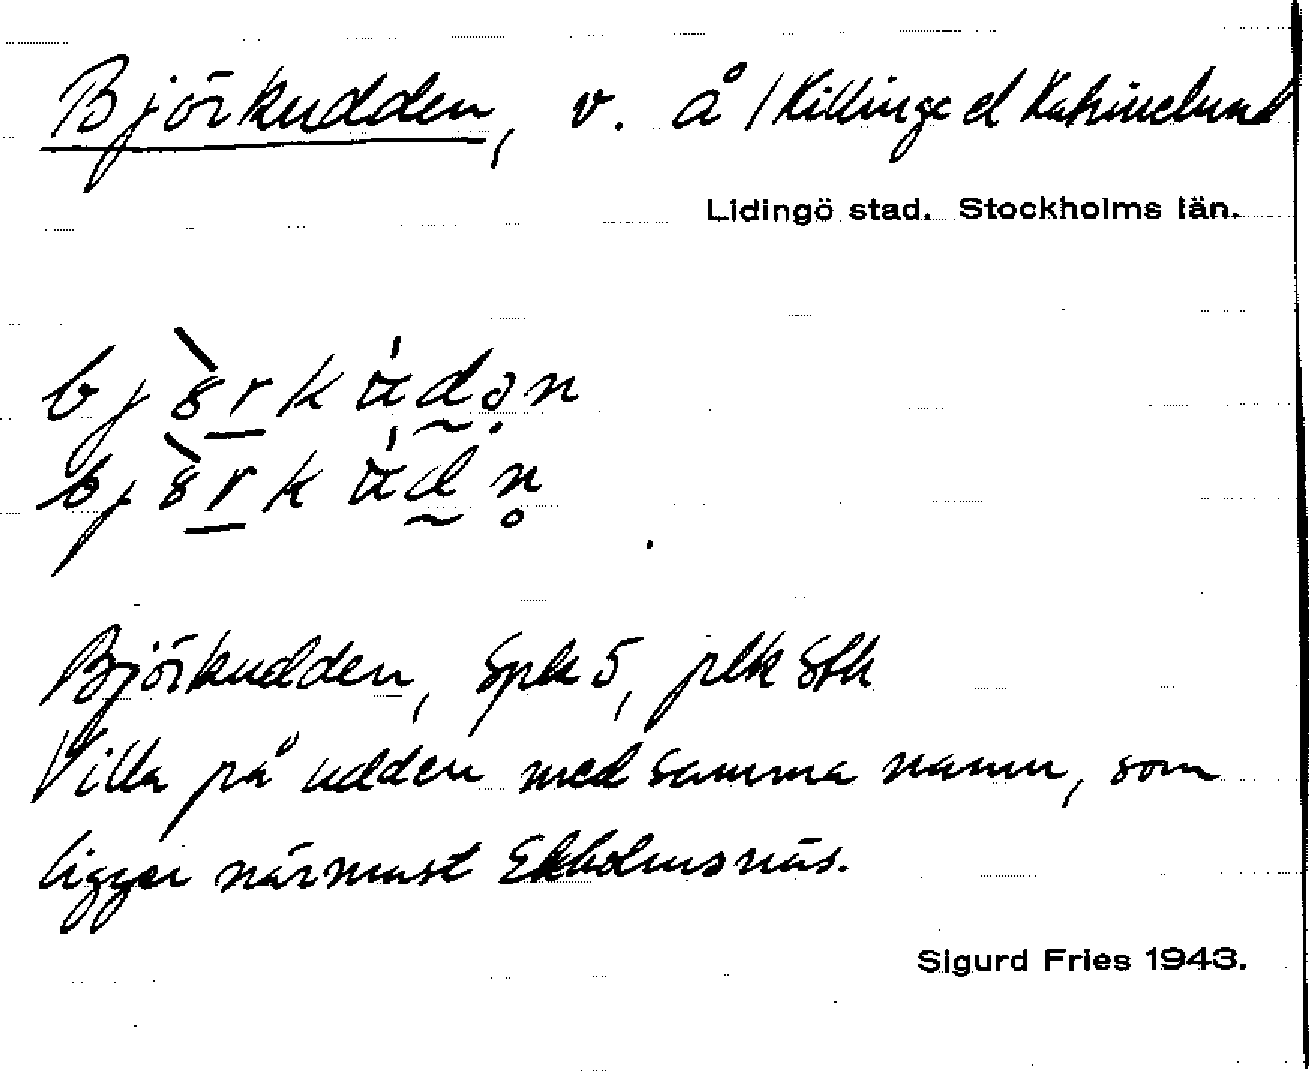 Björkudden, v. å /Killinge el Katrinelund
Lidingö stad. Stockholms län.
Björkudden, Spk 5, plk Sthk
Villa på udden med samma namn, som
ligger närmast Ekholmsnäs.
Sigurd Fries 1943.